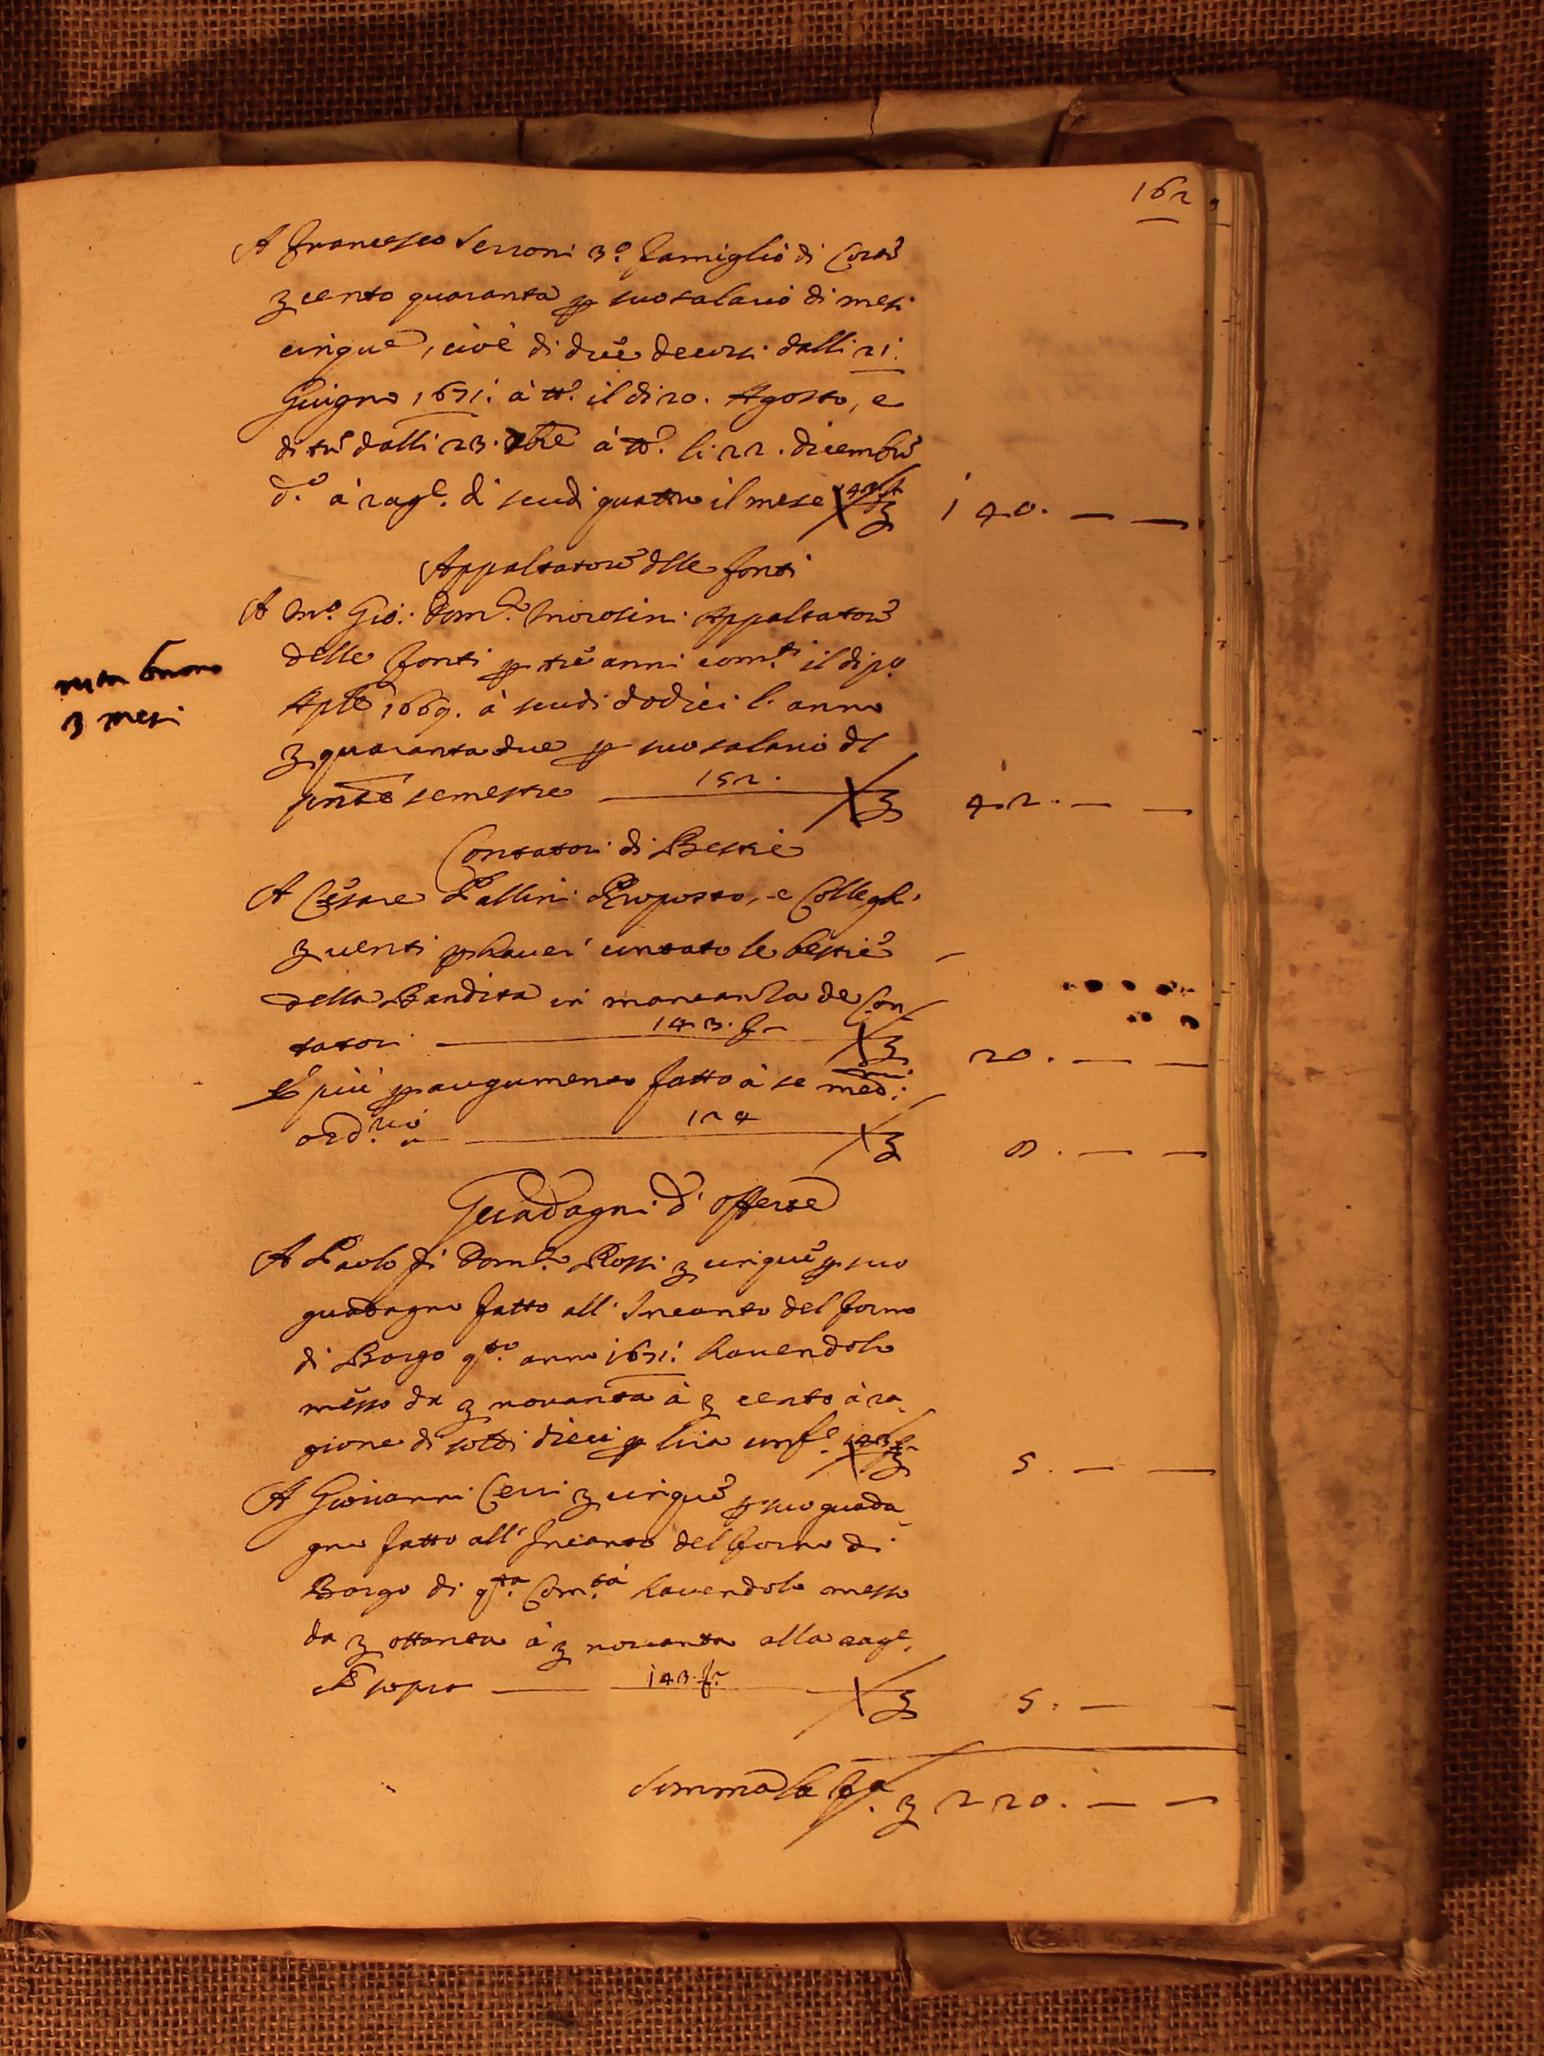 162
A Francesco Serroni 3.º famiglio di Corte
cento quaranta p suo salario di mesi
cinque, cioè di due decorsi dalli 21.
Giugno 1671. à tt.º il di 20. Agosto, e
di tre dalli 23. 7bre à tt.º li 22. dicembre
d.º à rag.e di scudi quattro il mese
140. — —
Appaltatore delle fonti
A m.º Gio: Dom.co Morosini Appaltatore
delle fonti p tre anni com.ti il di po
Aple 1669. à scudi dodici l'anno
quaranta due p suo salario del
pnte semestre 152.
42. — —
3 mesi
Contatori di Bestie
A Cesare Pallini Proposto, e Collegh.
venti p haver contato le bestie
della Bandita in mancanza de Con
tatori 143. f.
20. — —
E più p augumento fatto à se med.mi
ord.rio 124
8. — —
Guadagni d'offerte
A Paolo di Dom.co Rossi cinque p suo
guadagno fatto all'Incanto del forno
di Borgo q.to anno 1671. havendolo
messo da novanta à cento à ra
gione di soldi dieci p lira 143. f.
5. — —
A Giovanni Cerri cinque p suo guada
gno fatto all'Incanto del forno di
Borgo di q.ta Com.tà havendolo messo
da ottanta à novanta alla rag.e
sopra 143. f.
5. — —
Somma la fa. 220. — —